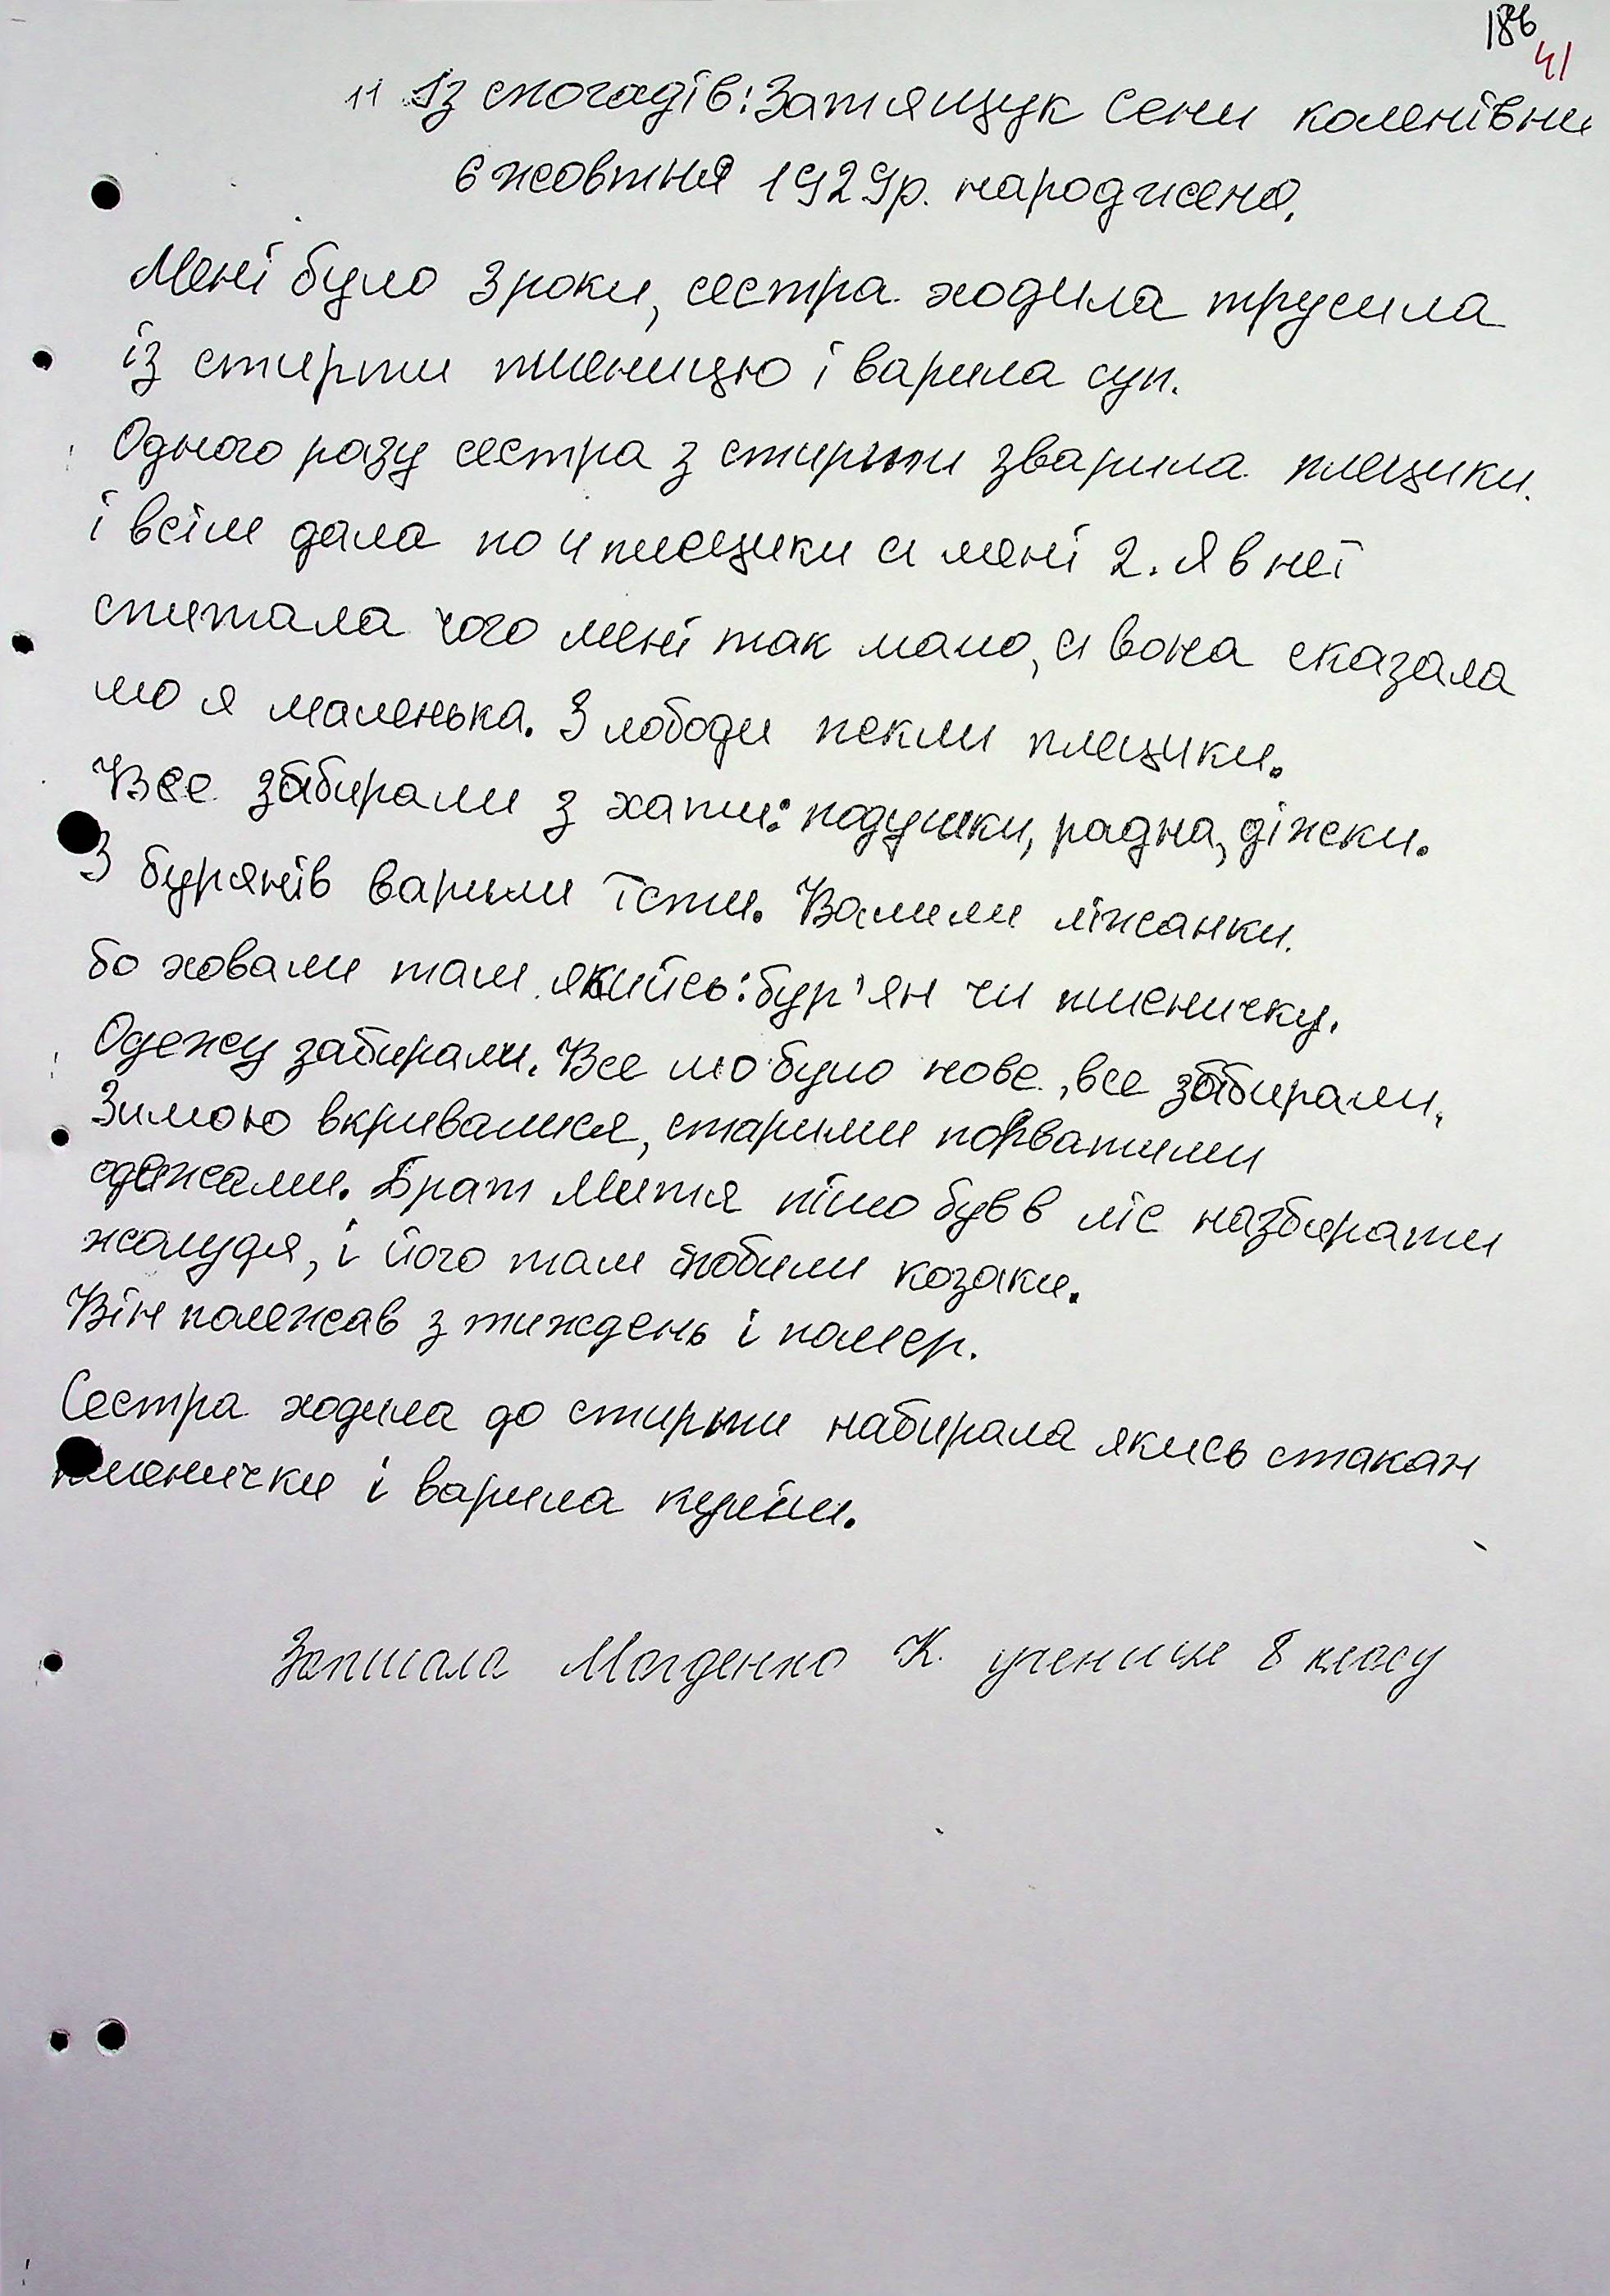 186
41
11 Із спогадів: Затящук Сени коленівни
6 жовтня 1929р. народження.
Мені було 3 роки, сестра ходила трусила
із стирти пшеницю і варила суп.
Одного разу сестра з стирти зварила плецики.
і всім дала по 4 плецики а мені 2. Я в неї
спитала чого мені так мало, а вона сказала
шо я маленька. З лободи пекли плецики.
Все забирали з хати: подушки, радна, діжки.
З бурянів варили їсти. Валили ліжанки.
бо ховали там якийсь: бур'ян чи пшеничку.
Одежу забирали. Все шо було нове, все забирали.
Зимою вкривалися, старими порватими
одежами. Брат Митя пішо був в ліс назбирати
жолудя, і його там побили козаки.
Він полежав з тиждень і помер.
Сестра ходила до стирти набирала якись стакан
пшенички і варила куліш.
Записала Магденко К. учениця 8 класу